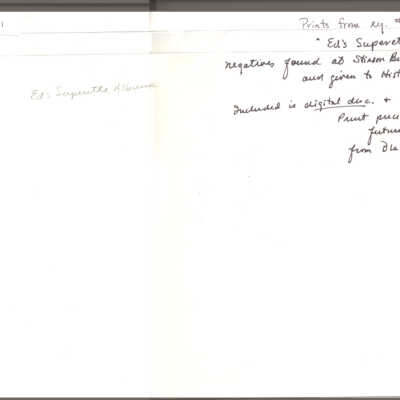 1
Ed's Superette Album
Prints from
"Ed's Superet
negatives found at Stinson B
and given to Hist
Included is digital disc. +
Print pric
future
from